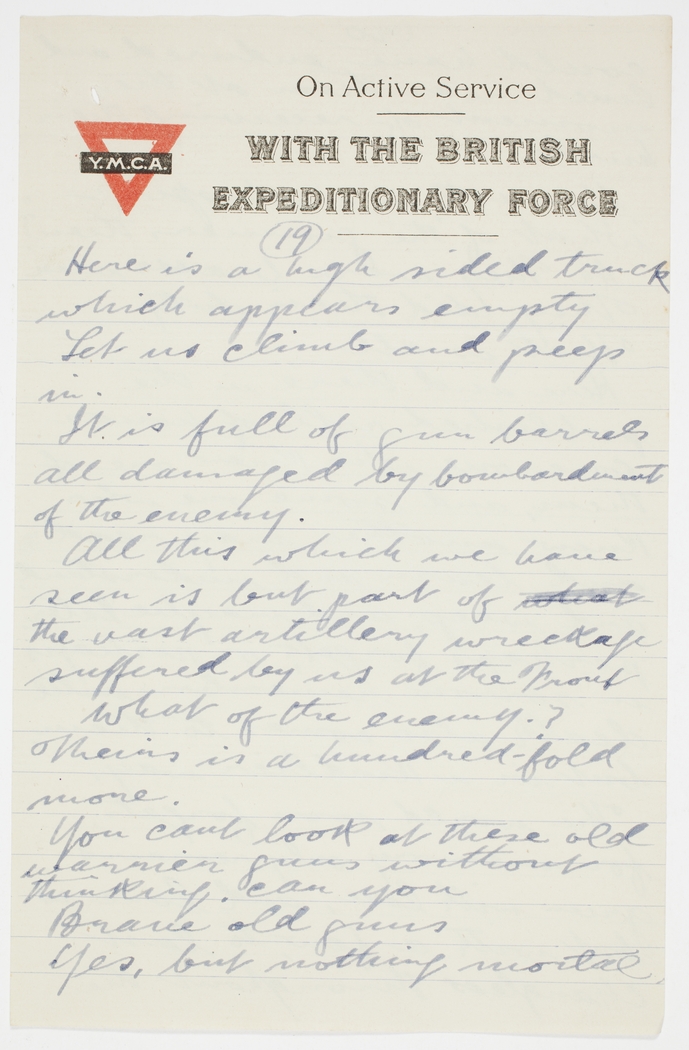 On Active Service
WITH THE BRITISH
Y.M.C.A.
EXPEDITIONARY FORCE
19
Here is a high sided truck
which appears empty
Let us climb and peep
in.
It is full of gun barrels
all damaged by bombardment
of the enemy.
All this which we have
seen is but part of what
the vast artillery wreckage
suffered by us at the Front
What of the enemy.?
Theirs is a hundred-fold
more.
You cant look at these old
warrier guns without
thinking. can you
Brave old guns
Yes, but nothing mortal